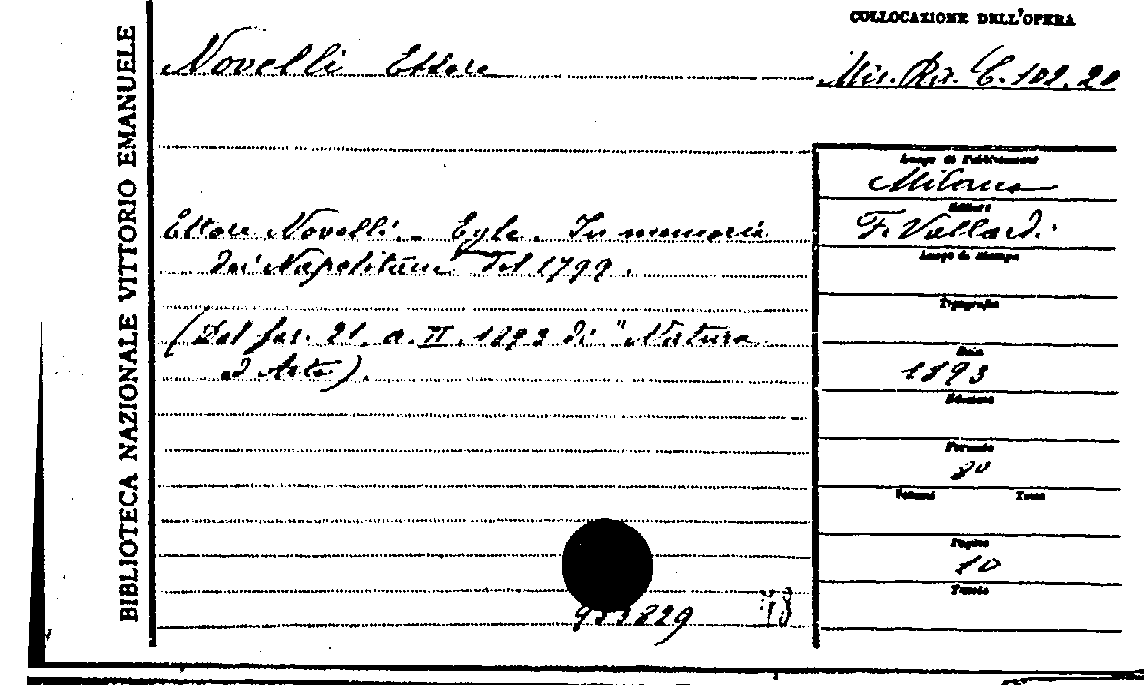 BIBLIOTECA NAZIONALE VITTORIO EMANUELE
COLLOCAZIONE DELL'OPERA
Novelli Ettore
Mis. Ris. C. 102. 20
Luogo di Pubblicazione
Milano
Editore
F. Vallardi
Luogo di stampa
Tipografia
Data
1893
Edizione
Formato
8º
Volumi Tomo
Pagine
10
Tavole
Ettore Novelli. - Egle. In memoria
dei Napolitani del 1799.
(Dal fas. 21. a. II. 1893 di "Natura
ed Arte).